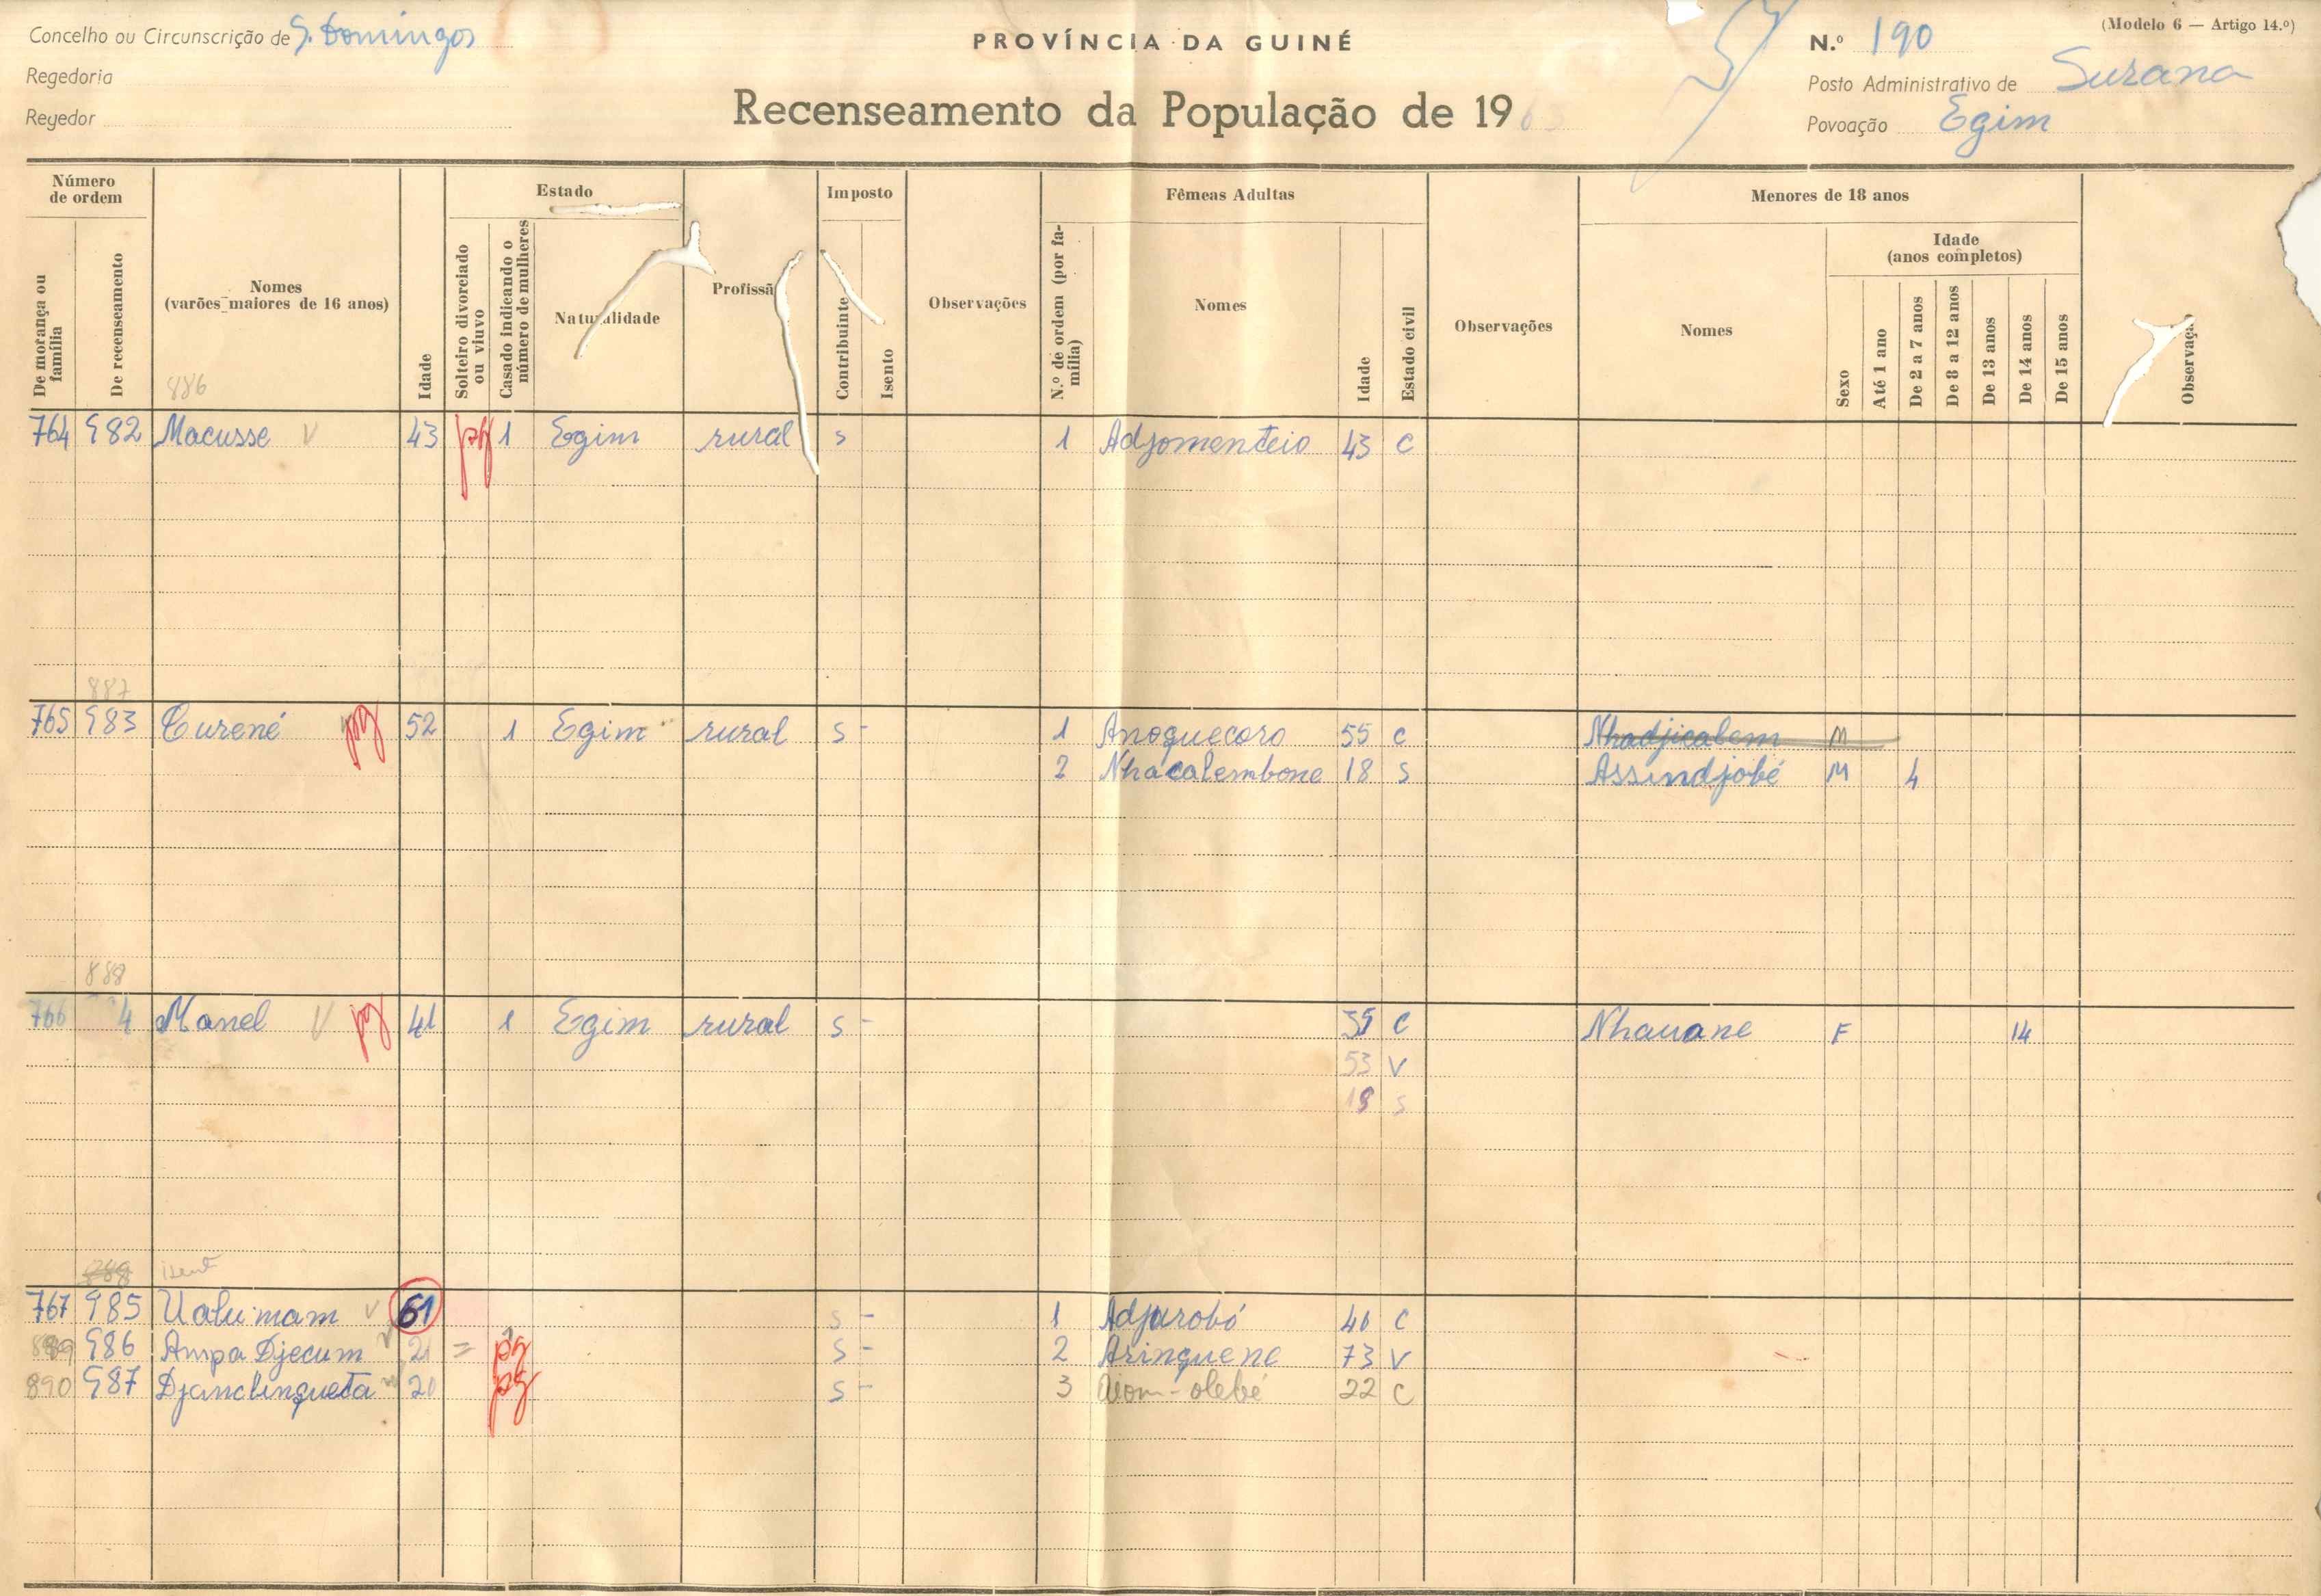 Concelho ou Circunscrição de S. Domingos
PROVÍNCIA DA GUINÉ
N.º 190
(Modelo 6 — Artigo 14.º)
Regedoria
Posto Administrativo de Suzana
Regedor
Recenseamento da População de 19
Povoação Egim
Número de ordem
De morança ou família
De recenseamento
Nomes
(varões maiores de 16 anos)
Idade
Estado
Solteiro divorciado ou viuvo
Casado indicando o número de mulheres
Naturalidade
Profissã
Imposto
Contribuinte
Isento
Observações
Fêmeas Adultas
N.º de ordem (por família)
Nomes
Idade
Estado civil
Observações
Menores de 18 anos
Nomes
Idade
(anos completos)
Sexo
Até 1 ano
De 2 a 7 anos
De 8 a 12 anos
De 13 anos
De 14 anos
De 15 anos
Observaçõ
886
764 982 Macusse V 43 pg 1 Egim rural s 1 Adjomenteio 43 C
887
765 983 Curené pg 52 1 Egim rural s - 1 Anoquecoro 55 C Nhadjicalem M
2 Nhacalembone 18 S Assindjobé M 4
888
766 4 Manel V pg 41 1 Egim rural s - C Nhauane F 14
53 V
18 S
isent
767 985 Ualimam V 61 s - 1 Adjarobó 40 C
889 986 Ampa Djecum V 21 = pg s - 2 Arinquene 73 V
890 987 Djanclinqueta 20 pg s - 3 22 C